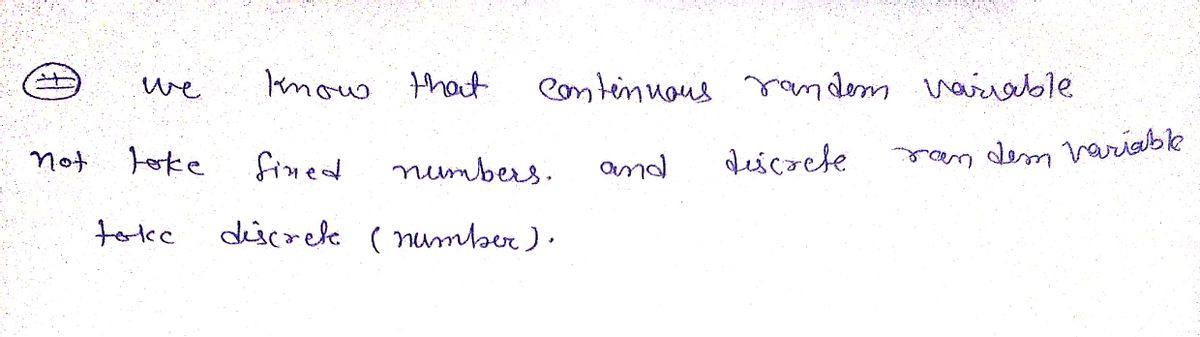 # we know that continuous random variable
not take fixed numbers. and discrete random variable
take discrete (number).